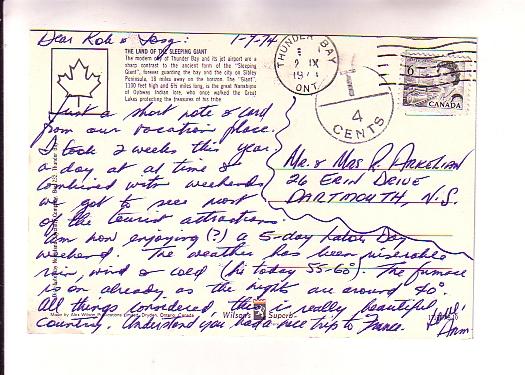 Dear Koh &
1-9-74
THE LAND OF THE SLEEPING GIANT
The modern city of Thunder Bay and its jet airport are a
sharp contrast to the ancient form of the "Sleeping
Giant", forever guarding the bay and the city on Sibley
Peninsula, 18 miles away on the horizon. The "Giant",
1100 feet high and 6½ miles long, is the great Nanabijou
of Ojibway Indian lore, who once walked the Great
Lakes protecting the treasures of his tribe.
THUNDER BAY
2 IX
ONT.
T
4
CENTS
6
CANADA
Just a short note & card
from our vacation place.
I took 2 weeks this year
a day at a time &
combined with weekends
we got to see most
of the tourist attractions.
Am now enjoying (?) a 5-day Labor Day
weekend. The weather has been miserable
rain, wind & cold (hi today 55-60°). The furnace
is on already as the nights are around 40°.
All things considered, this is really beautiful
country. Understand you had a nice trip to France.
Ann
Mr. & Mrs R. Arkelian
26 Erin Drive
Dartmouth, N.S.
Dryden, Ontario, Canada
Wilson's Superb